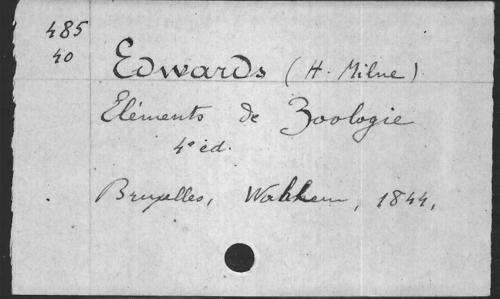 485
40
Edwards (H. Milne)
Eléments de Zoologie
4e éd.
Bruxelles, Wahlen, 1844,